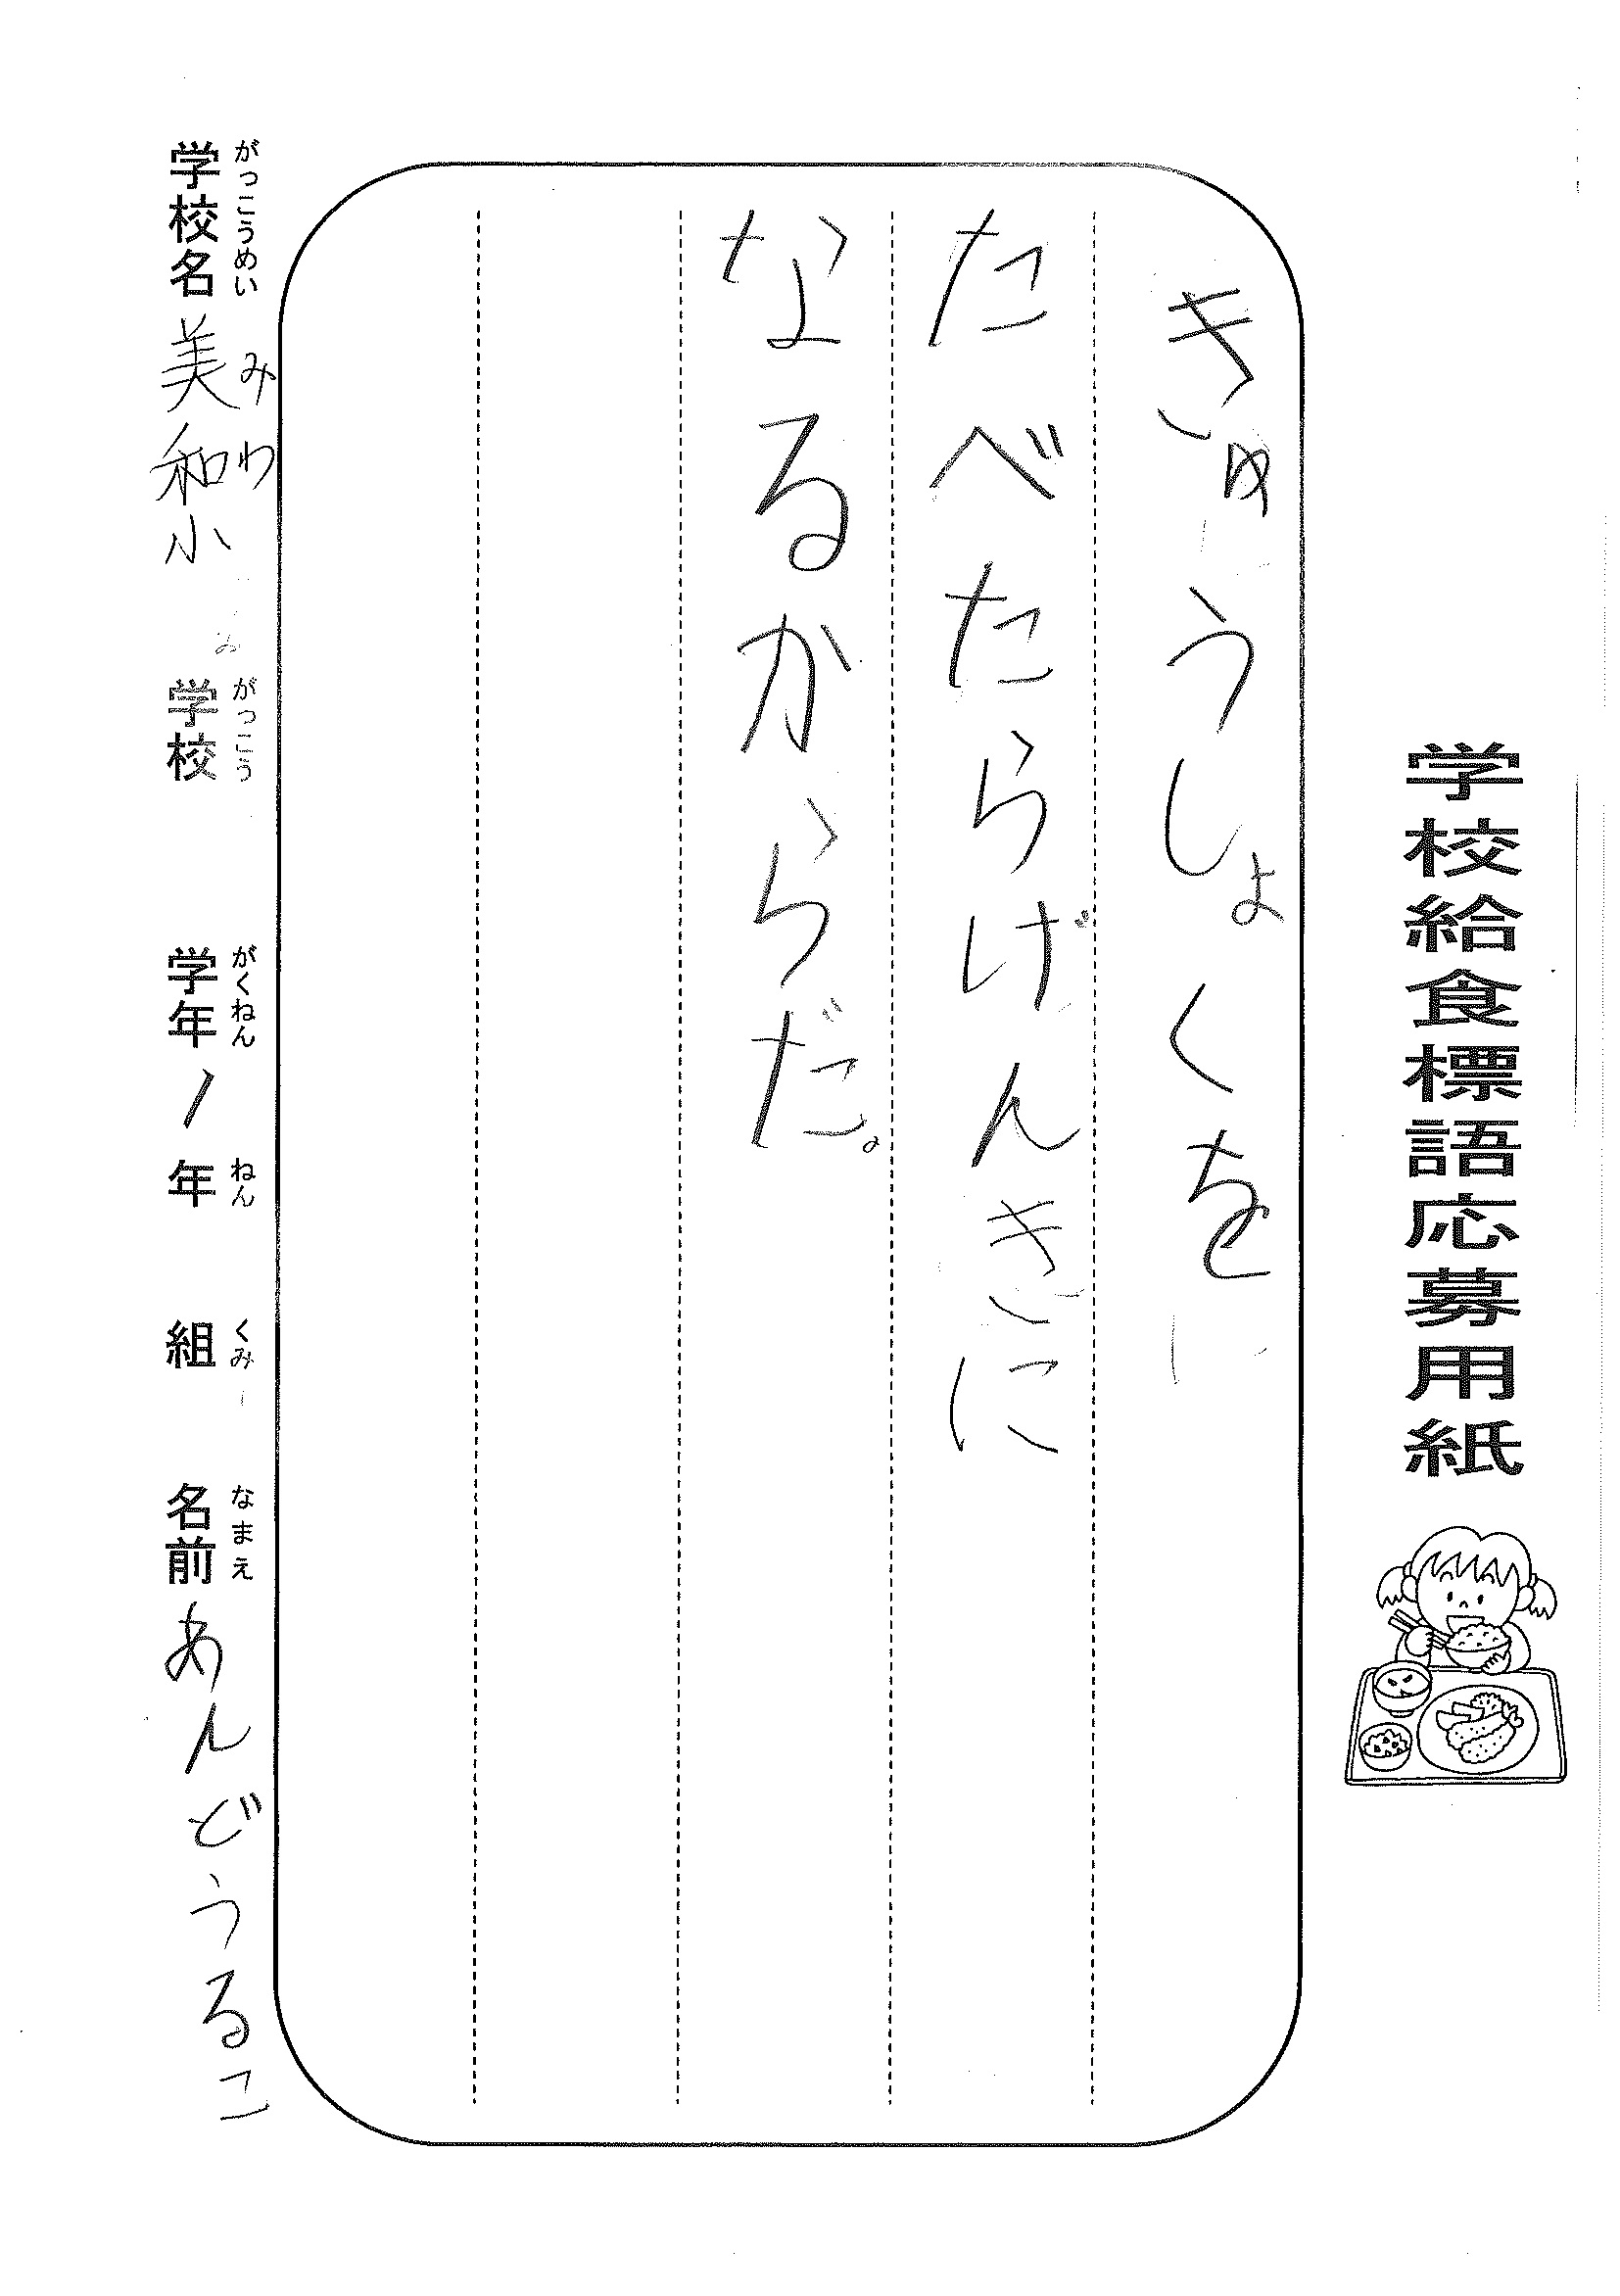 学校給食標語応募用紙
きゅうしょくを
たべたらげんきに
なるからだ。
がっこうめい みわ がっこう がくねん ねん くみ なまえ
学校名 美和小 学校 学年 1 年 組 名前 あんどうるこ